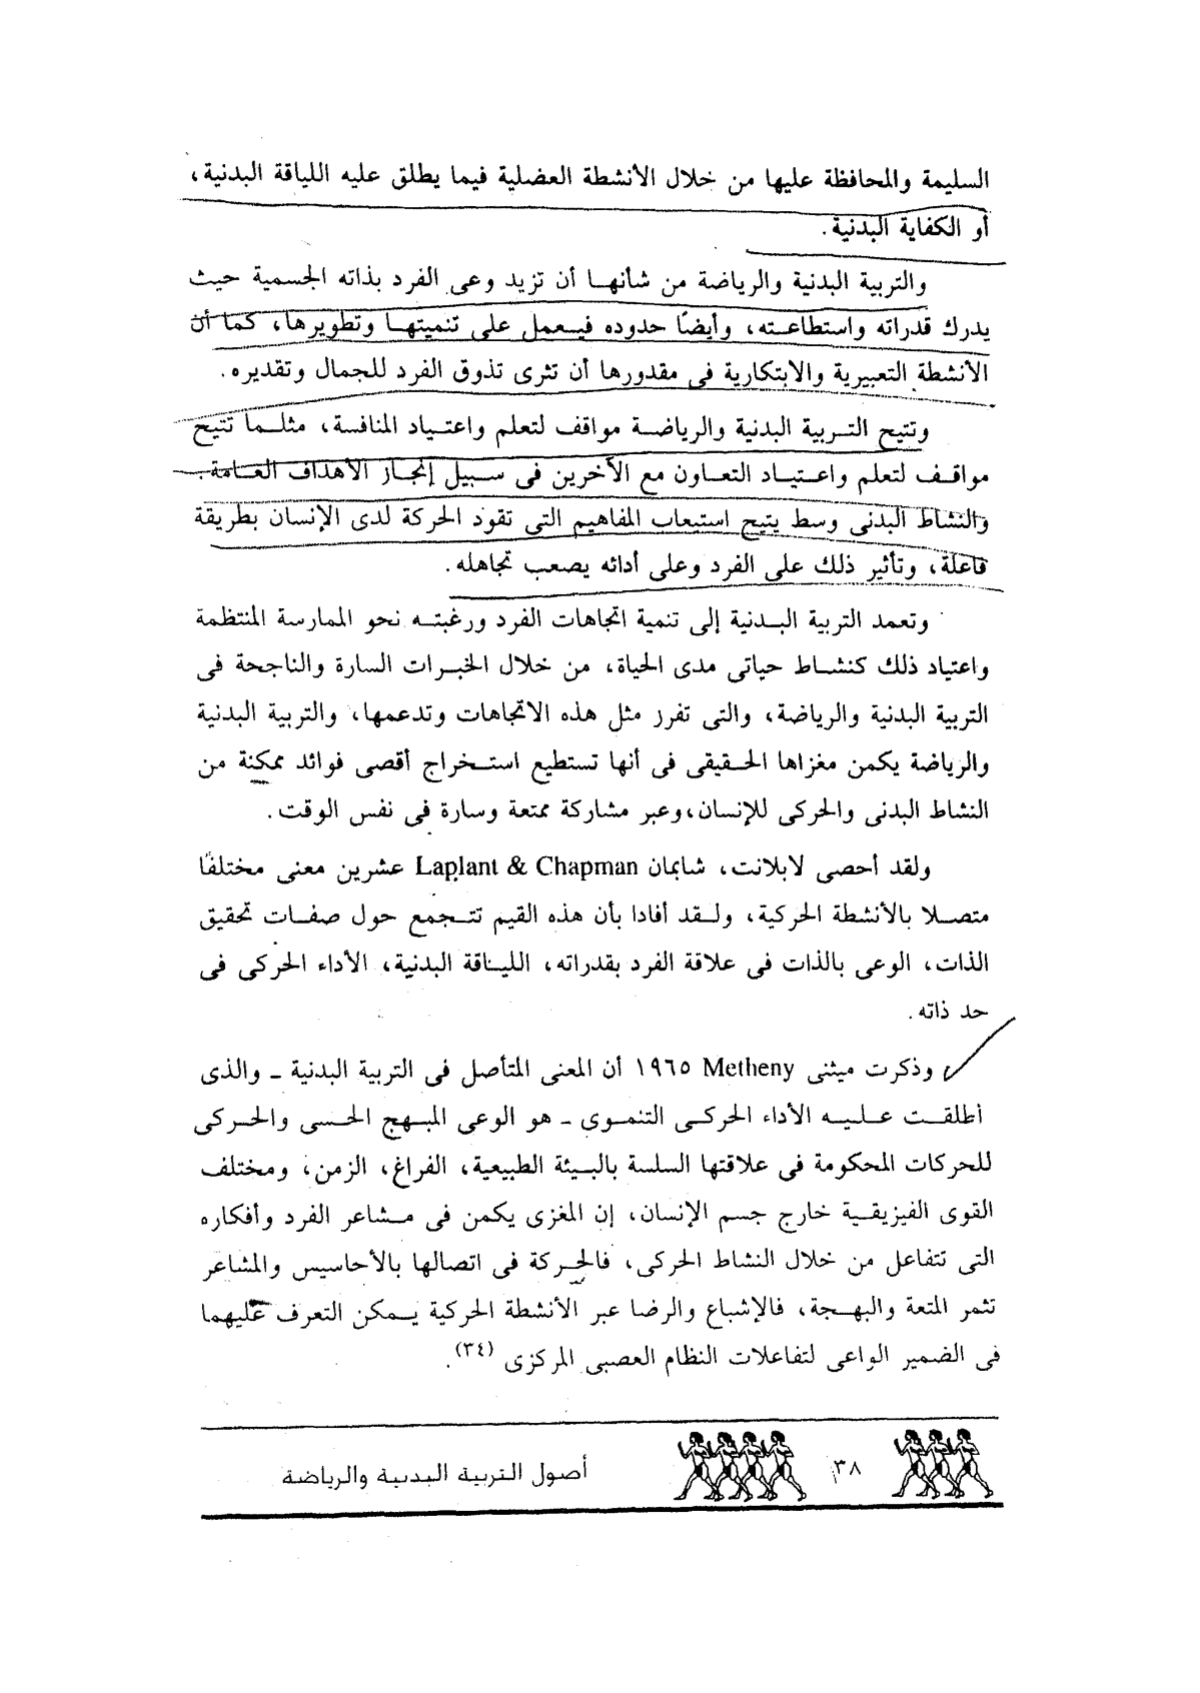 السليمة والمحافظة عليها من خلال الأنشطة العضلية فيما يطلق عليه اللياقة البدنية،
أو الكفاية البدنية.
والتربية البدنية والرياضة من شأنها أن تزيد وعى الفرد بذاته الجسمية حيث
يدرك قدراته واستطاعته، وأيضًا حدوده فيعمل على تنميتها وتطويرها، كما أن
الأنشطة التعبيرية والابتكارية فى مقدورها أن تثرى تذوق الفرد للجمال وتقديره.
وتتيح التربية البدنية والرياضة مواقف لتعلم واعتياد المنافسة، مثلما تتيح
مواقف لتعلم واعتياد التعاون مع الأخرين فى سبيل إنجاز الأهداف العامة.
والنشاط البدنى وسط يتيح استيعاب المفاهيم التى تقود الحركة لدى الإنسان بطريقة
فاعلة، وتأثير ذلك على الفرد وعلى أدائه يصعب تجاهله.
وتعمد التربية البدنية إلى تنمية اتجاهات الفرد ورغبته نحو الممارسة المنتظمة
واعتياد ذلك كنشاط حياتى مدى الحياة، من خلال الخبرات السارة والناجحة فى
التربية البدنية والرياضة، والتى تفرز مثل هذه الاتجاهات وتدعمها، والتربية البدنية
والرياضة يكمن مغزاها الحقيقى فى أنها تستطيع استخراج أقصى فوائد ممكنة من
النشاط البدنى والحركى للإنسان، وعبر مشاركة ممتعة وسارة فى نفس الوقت.
ولقد أحصى لابلانت، شابمان Laplant & Chapman عشرين معنى مختلفًا
متصلا بالأنشطة الحركية، ولقد أفادا بأن هذه القيم تتجمع حول صفات تحقيق
الذات، الوعى بالذات فى علاقة الفرد بقدراته، اللياقة البدنية، الأداء الحركى فى
حد ذاته.
وذكرت ميثنى Metheny ١٩٦٥ أن المعنى المتأصل فى التربية البدنية ـ والذى
أطلقت عليه الأداء الحركى التنموى ـ هو الوعى المبهج الحسى والحركى
للحركات المحكومة فى علاقتها السلسة بالبيئة الطبيعية، الفراغ، الزمن، ومختلف
القوى الفيزيقية خارج جسم الإنسان، إن المغزى يكمن فى مشاعر الفرد وأفكاره
التى تتفاعل من خلال النشاط الحركى، فالحركة فى اتصالها بالأحاسيس والمشاعر
تثمر المتعة والبهجة، فالإشباع والرضا عبر الأنشطة الحركية يمكن التعرف عليهما
فى الضمير الواعى لتفاعلات النظام العصبى المركزى (٣٤).
٣٨ أصول التربية البدنية والرياضة